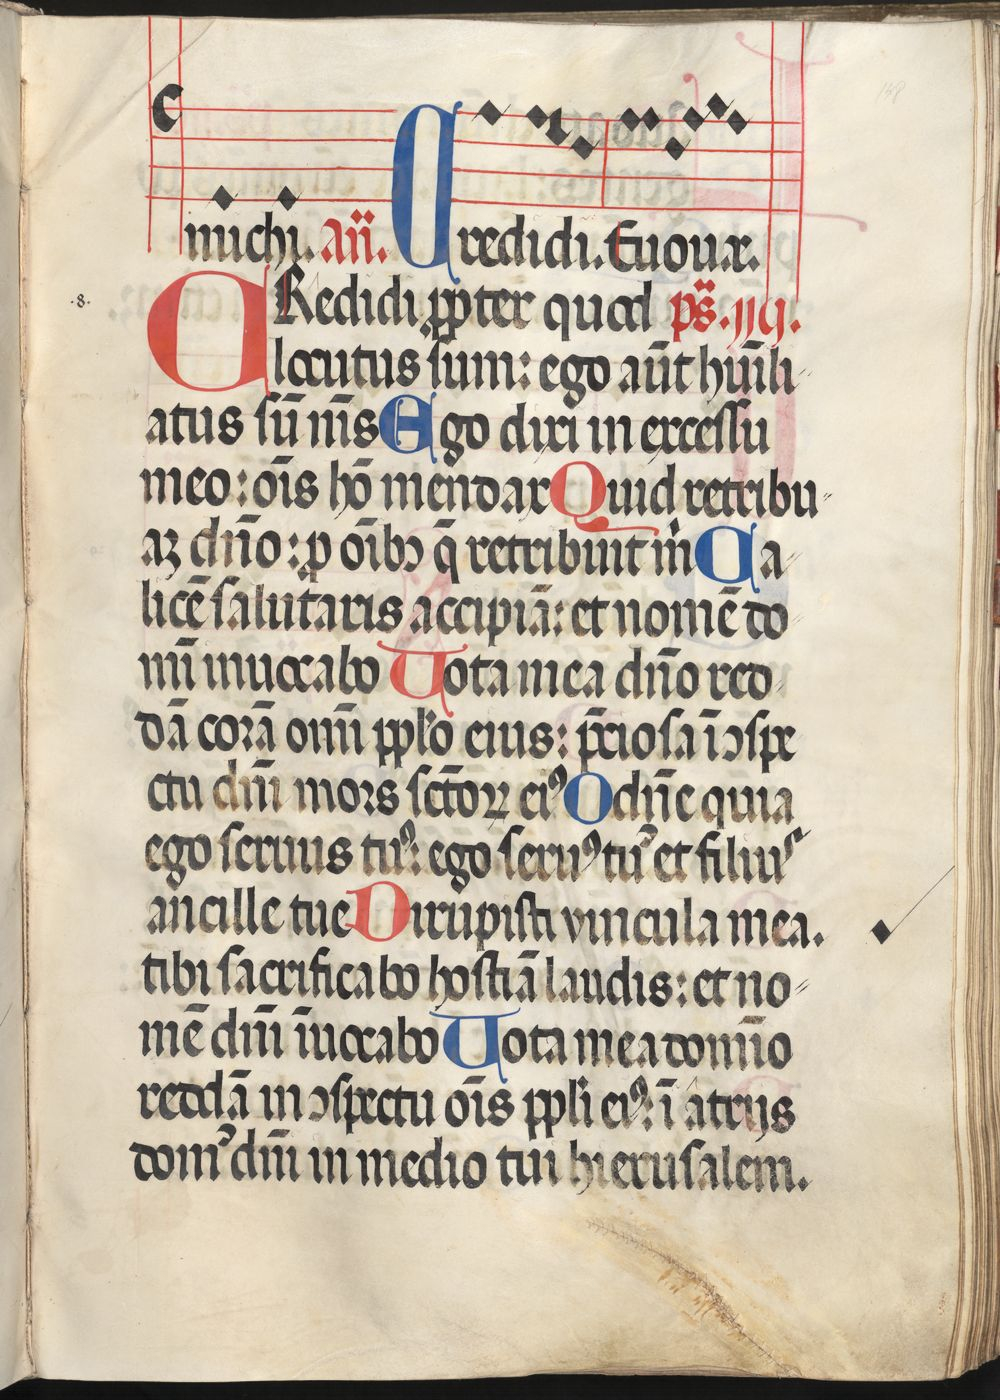 michi. Añ. Credidi. Euouae.
CRedidi ꝓpter quod ps̃. 119.
locutus sum: ego aũt humĩli
atus sũ nĩs Ego dixi in excessu
meo: oĩs hõ mendax Quid retribu
aꝫ dño: ꝓ oĩbꝰ q̃ retribuit m̃ Ca
licẽ salutaris accipiã: et nomẽ do
mĩ inuocabo Uota mea dño red
dã corã omĩ ppl̃o eius: p̃ciosa ĩ ꝯspe
ctu dñi mors sc̃toꝝ eiꝰ O dñe quia
ego seruus tuꝰ: ego seruꝰ tuꝰ et filiuˢ
ancille tue Dirupisti vincula mea.
tibi sacrificabo hostiã laudis: et no
mẽ dñi ĩuocabo Uota mea domĩo
reddã in ꝯspectu oĩs ppl̃i eiꝰ: ĩ atrijs
domꝰ dñi in medio tui hierusalem.
.8.